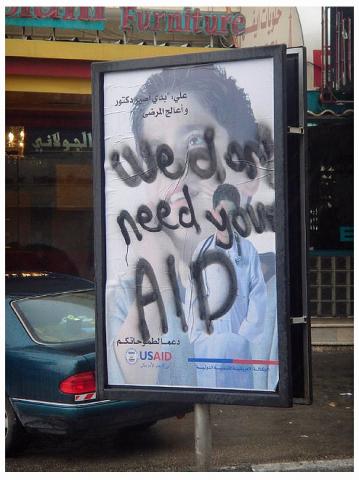 Furniture
علي، "بدي أصير دكتور
وأعالج المرضى
We don't
need your
AID
دعماً لطموحاتكم
USAID
من الشعب الأمريكي
الوكالة الأمريكية للتنمية الدولية
الجولاني